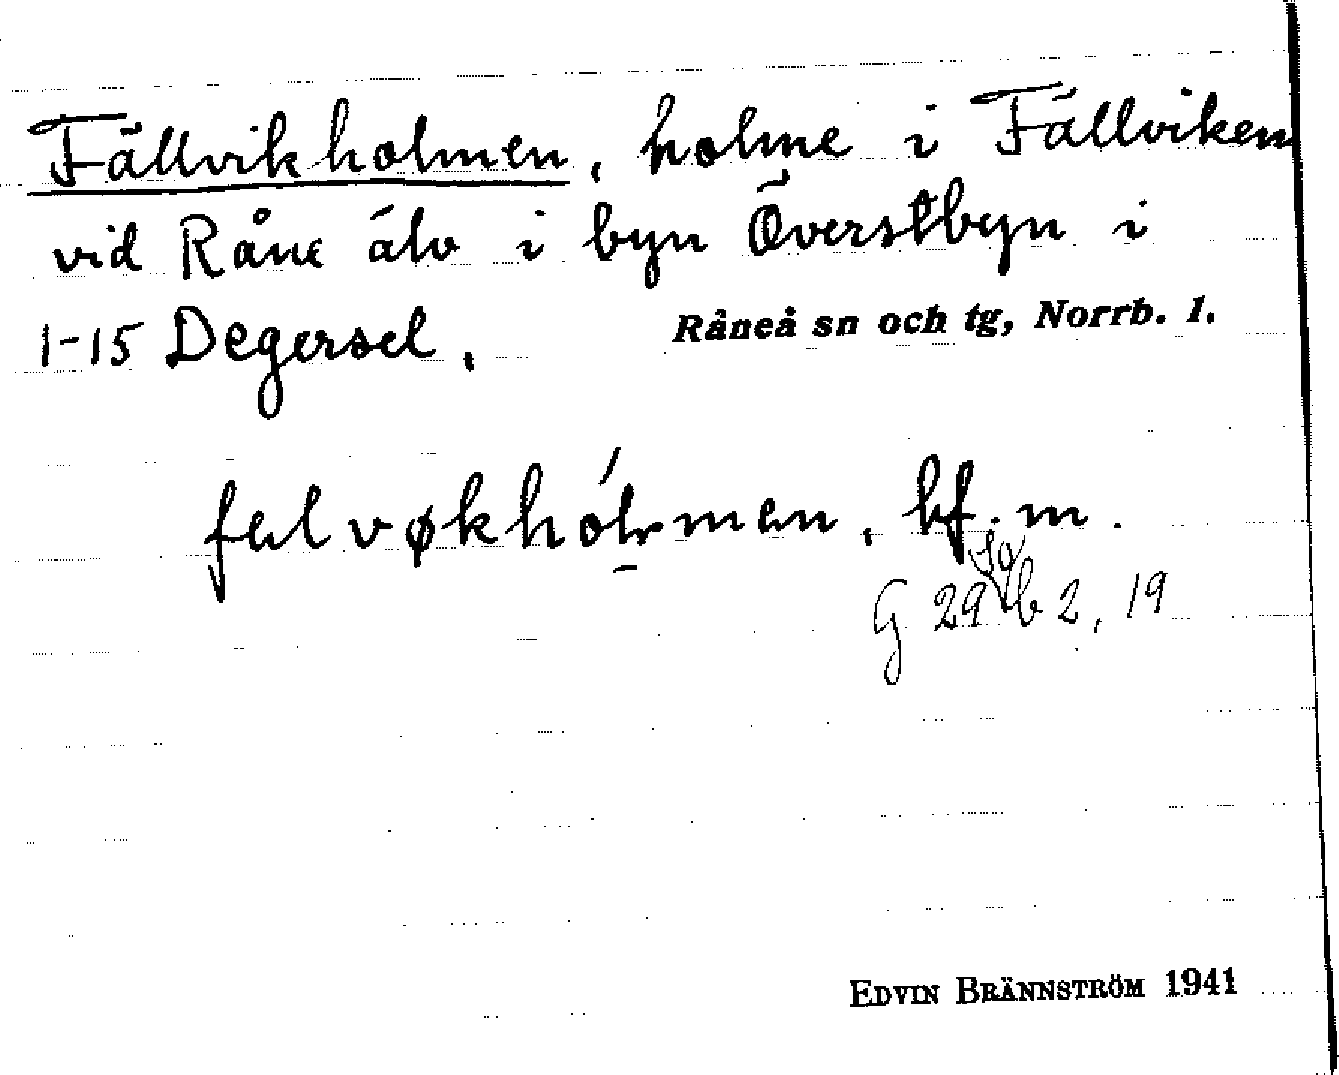 Fällvikholmen, holme i Fällviken
vid Råne älv i byn Överstbyn i
1-15 Degersel.
Råneå sn och tg, Norrb. l.
bf. m.
So
G 29 b 2, 19
EDVIN BRÄNNSTRÖM 1941